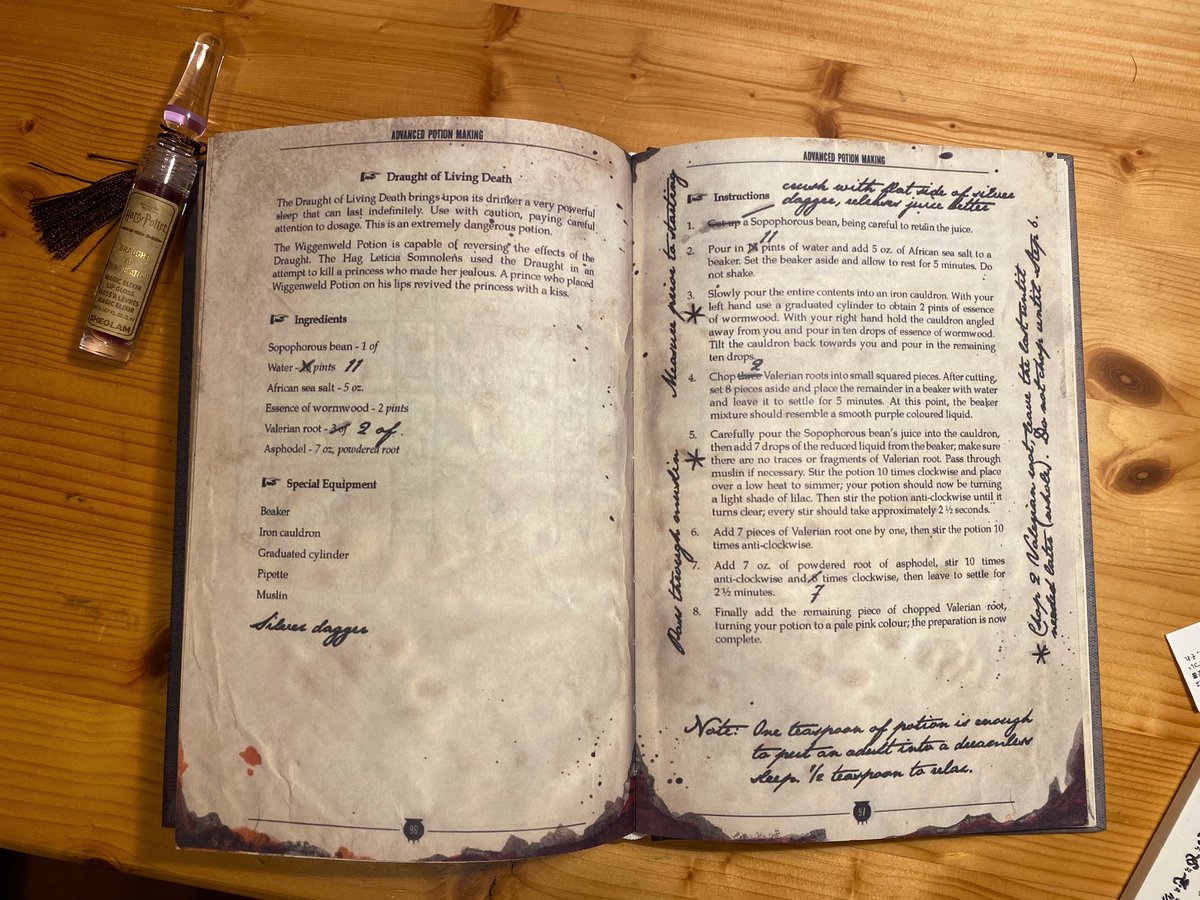 ADVANCED POTION MAKING
Draught of Living Death
The Draught of Living Death brings upon its drinker a very powerful
sleep that can last indefinitely. Use with caution, paying careful
attention to dosage. This is an extremely dangerous potion.
The Wiggenweld Potion is capable of reversing the effects of the
Draught. The Hag Leticia Somnolens used the Draught in an
attempt to kill a princess who made her jealous. A prince who placed
Wiggenweld Potion on his lips revived the princess with a kiss.
Ingredients
Sopophorous bean - 1 of
Water - pints 11
African sea salt - 5 oz.
Essence of wormwood - 2 pints
Valerian root - 3 of 2 of.
Asphodel - 7 oz, powdered root
Special Equipment
Beaker
Iron cauldron
Graduated cylinder
Pipette
Muslin
Silver dagger
96
ADVANCED POTION MAKING
Instructions
crush with flat side of silver
dagger, releases juice better
1. Cut up a Sopophorous bean, being careful to retain the juice.
11
2. Pour in pints of water and add 5 oz. of African sea salt to a
beaker. Set the beaker aside and allow to rest for 5 minutes. Do
not shake.
3. Slowly pour the entire contents into an iron cauldron. With your
left hand use a graduated cylinder to obtain 2 pints of essence
of wormwood. With your right hand hold the cauldron angled
away from you and pour in ten drops of essence of wormwood.
Tilt the cauldron back towards you and pour in the remaining
ten drops.
2
4. Chop three Valerian roots into small squared pieces. After cutting,
set 8 pieces aside and place the remainder in a beaker with water
and leave it to settle for 5 minutes. At this point, the beaker
mixture should resemble a smooth purple coloured liquid.
5. Carefully pour the Sopophorous bean's juice into the cauldron,
then add 7 drops of the reduced liquid from the beaker; make sure
there are no traces or fragments of Valerian root. Pass through
muslin if necessary. Stir the potion 10 times clockwise and place
over a low heat to simmer; your potion should now be turning
a light shade of lilac. Then stir the potion anti-clockwise until it
turns clear; every stir should take approximately 2 ½ seconds.
6. Add 7 pieces of Valerian root one by one, then stir the potion 10
times anti-clockwise.
7. Add 7 oz. of powdered root of asphodel, stir 10 times
anti-clockwise and times clockwise, then leave to settle for
2 ½ minutes. 7
8. Finally add the remaining piece of chopped Valerian root,
turning your potion to a pale pink colour; the preparation is now
complete.
Measure prior to starting
Pass through muslin
* Chop 2 Valerian root, leave the last until
needed later (whole). Do not chop until step 6.
Note: One teaspoon of potion is enough
to put an adult into a dreamless
sleep. ½ teaspoon to relax.
97
Harry Potter
DRAUGHT
OF
MAGIC ELIXIR
LIP GLOSS
MAGIC ELIXIR
SHEGLAM